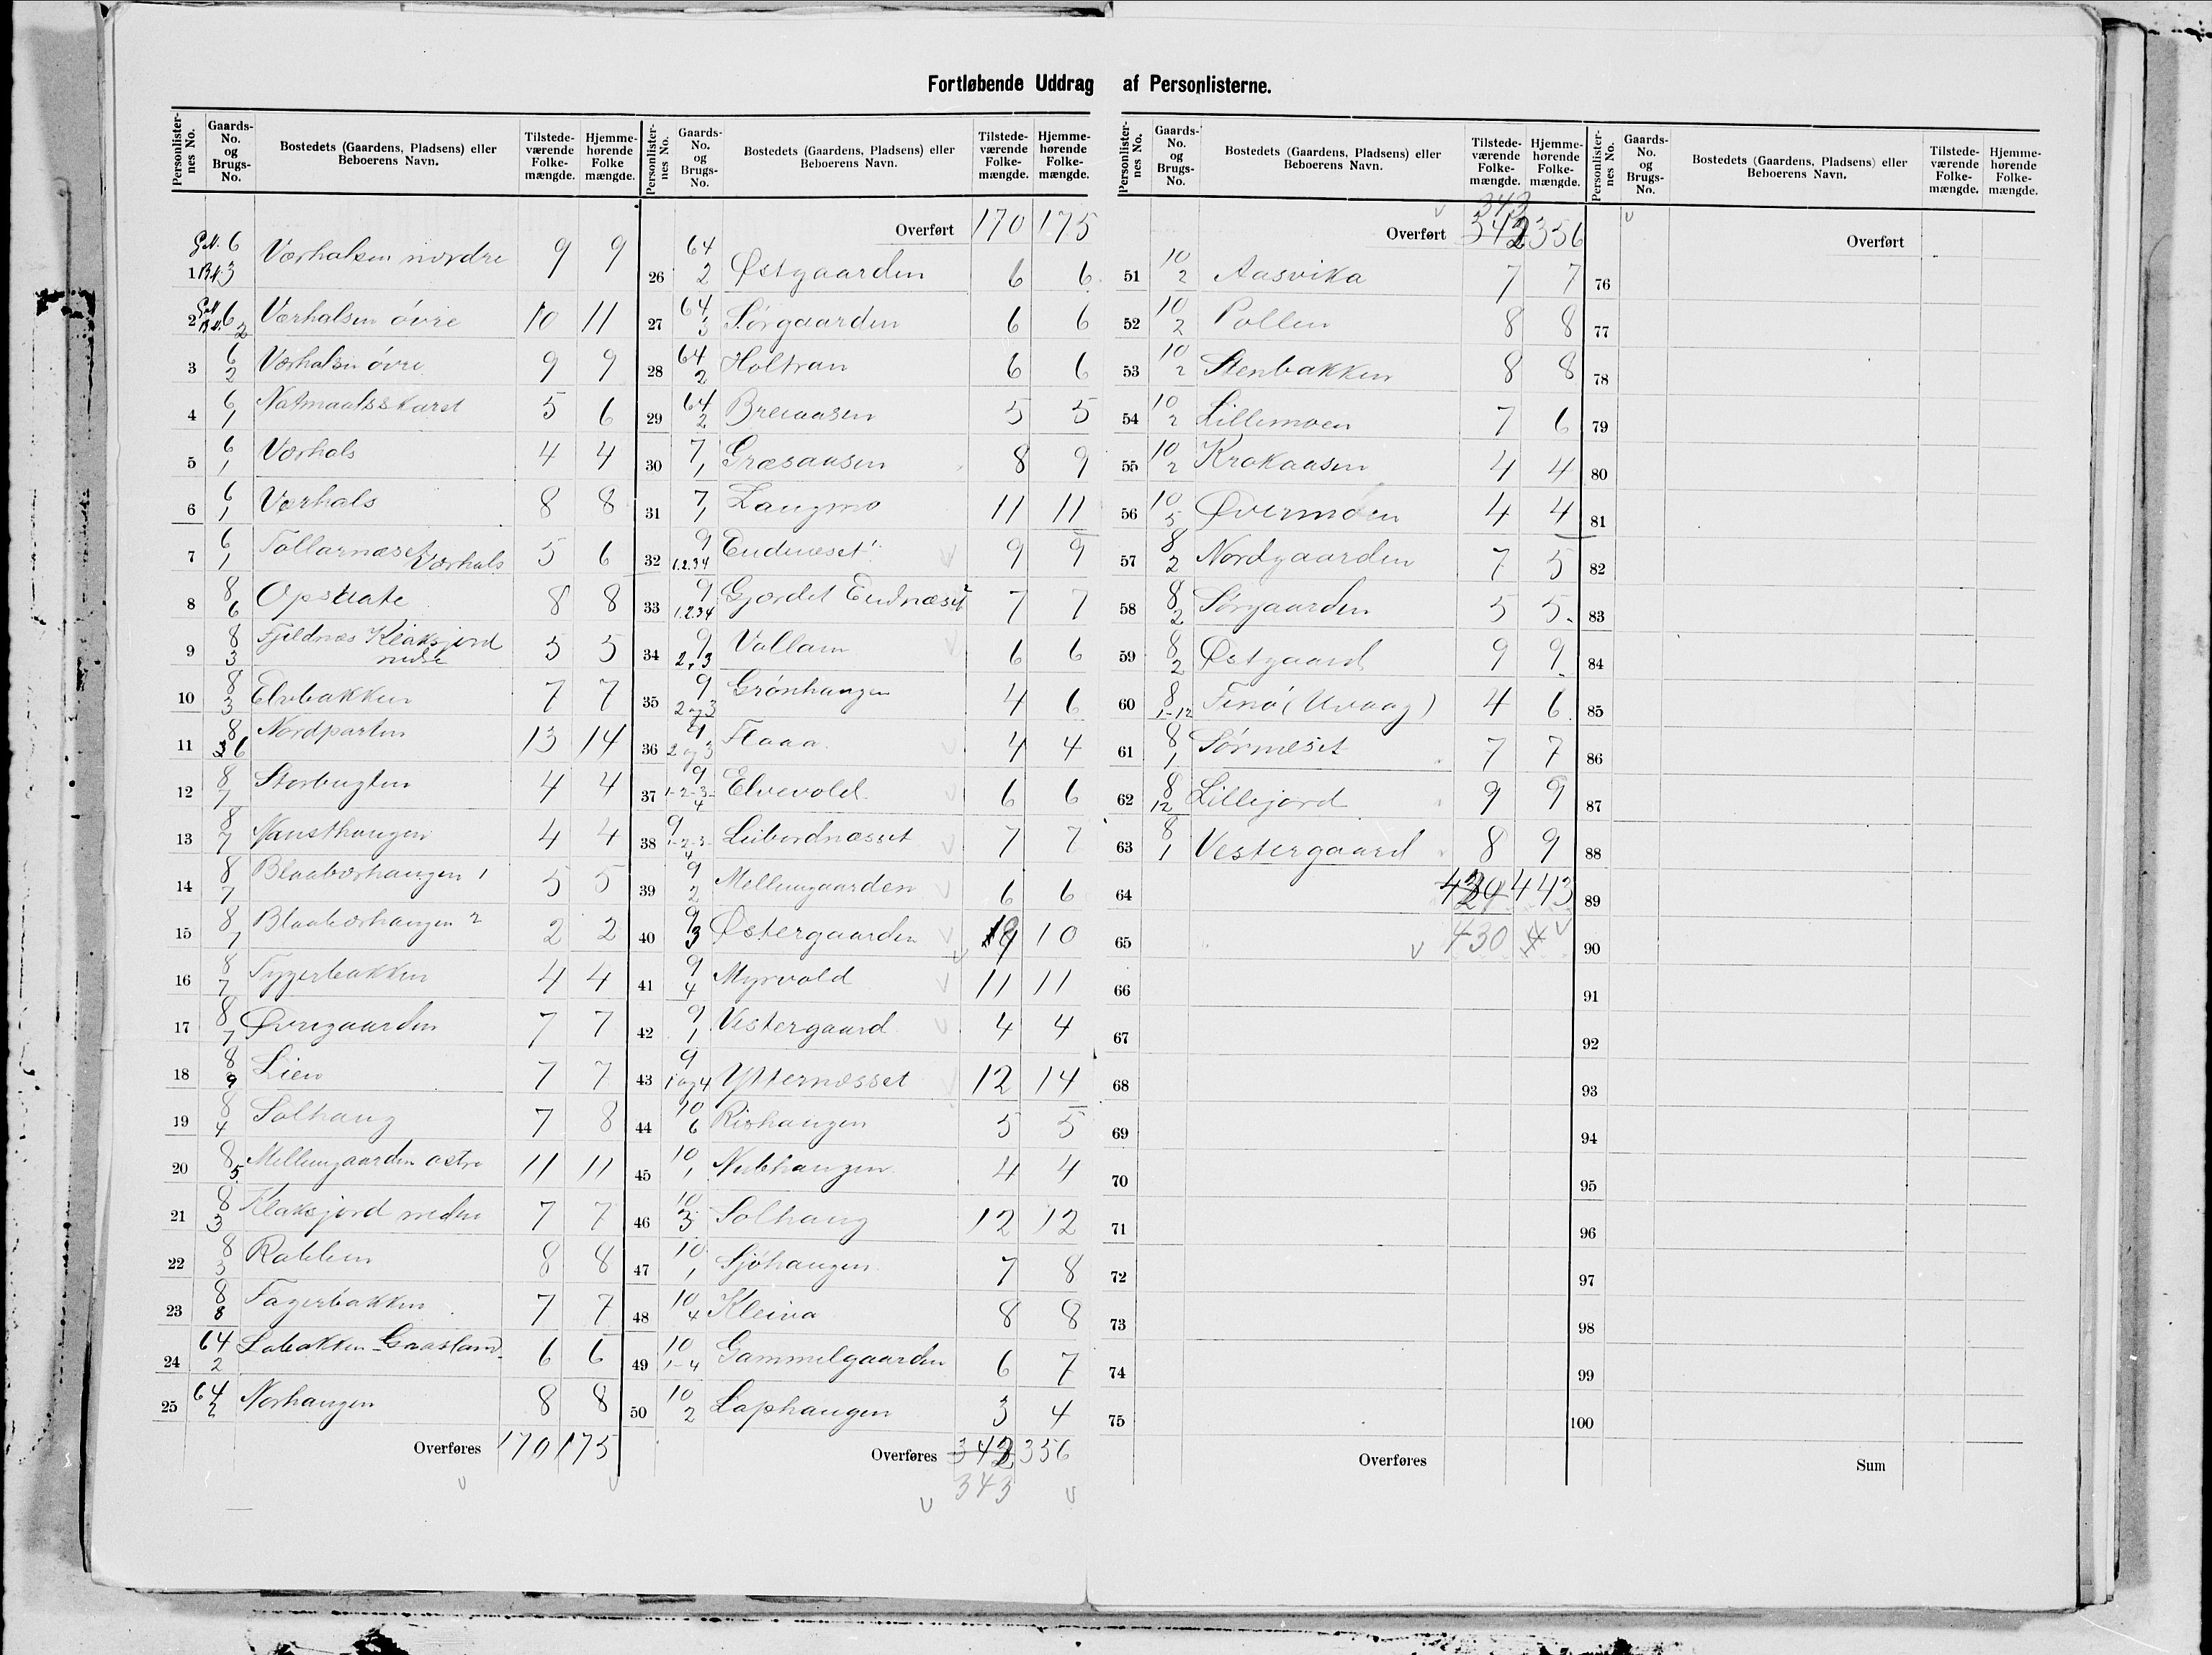 Fortløbende Uddrag af Personlisterne.
Personlister-nes No. Gaards-No. og Brugs-No. Bostedets (Gaardens, Pladsens) eller Beboerens Navn. Tilstede-værende Folke-mængde. Hjemme-hørende Folke mængde.
1 G.N. 6 B.N. 3 Værhalsen nordre 9 9
2 G.N. 6 B.N. 2 Værhalsen övre 10 11
3 6 2 Værhalsen övre 9 9
4 6 1 Natmaalsskaret 5 6
5 6 1 Værhals 4 4
6 6 1 Værhals 8 8
7 6 1 Tollarnæset Værhals 5 6
8 8 6 8 8
9 8 3 Fjeldnæs Klaksjord nedre 5 5
10 8 3 Elvbakken 7 7
11 8 36 Nordparten 13 14
12 8 7 Storbugten 4 4
13 8 7 Nausthaugen 4 4
14 8 7 Blaabærhaugen 1 5 5
15 8 7 Blaabærhaugen 2 2 2
16 8 7 4 4
17 8 7 Øvregaarden 7 7
18 8 9 Lien 7 7
19 8 4 Solhaug 7 8
20 8 5 Mellemgaarden østre 11 11
21 8 3 Klaksjord nedre 7 7
22 8 3 8 8
23 8 8 Fagerbakken 7 7
24 64 2 Gaasland 6 6
25 64 2 Norhaugen 8 8
Overføres 170 175
Personlister-nes No. Gaards-No. og Brugs-No. Bostedets (Gaardens, Pladsens) eller Beboerens Navn. Tilstede-værende Folke-mængde. Hjemme-hørende Folke-mængde.
Overført 170 175
26 64 2 Østgaarden 6 6
27 64 3 Sørgaarden 6 6
28 64 2 Holtran 6 6
29 64 2 Breiaasen 5 5
30 7 1 Græsaasen 8 9
31 7 1 Langmo 11 11
32 9 1.2.3.4 Eidnæset 1 9 9
33 9 1.2.3.4 Gjærdet Eidnæset 2 7 7
34 9 2, 3 Vollam 6 6
35 9 2 og 3 Grönhaugen 4 6
36 9 2 og 3 Flaaa 4 4
37 9 1-2-3-4 Elvevold 6 6
38 9 1-2-3-4 Leibordnæsset 7 7
39 9 2 Mellemgaarden 6 6
40 9 3 Østergaarden 9 10
41 9 4 Myrvold 11 11
42 9 1 Vestergaard 4 4
43 9 1 og 4 Ytternæsset 12 14
44 10 6 Rishaugen 5 5
45 10 1 Nubhaugen 4 4
46 10 3 Solhaug 12 12
47 10 1 Sjöhaugen 7 8
48 10 4 Kleiva 8 8
49 10 1-4 Gammelgaarden 6 7
50 10 2 Laphaugen 3 4
Overføres 342 356
343
Personlister-nes No. Gaards-No. og Brugs-No. Bostedets (Gaardens, Pladsens) eller Beboerens Navn. Tilstede-værende Folke-mængde. Hjemme-hørende Folke-mængde.
343
Overført 342 356
51 10 2 Aasvika 7 7
52 10 2 Pollen 8 8
53 10 2 Stenbakken 8 8
54 10 2 Lillemoen 7 6
55 10 2 Krokaasen 4 4
56 10 5 Øvermoen 4 4
57 8 2 Nordgaarden 7 5
58 8 2 Sørgaarden 5 5
59 8 2 Østgaard 9 9
60 8 1-12 Finö (Uvaag) 4 6
61 8 1 Sörnæset 7 7
62 8 12 Lillejord 9 9
63 8 1 Vestergaard 8 9
64 429 443
65 430
66
67
68
69
70
71
72
73
74
75
Overføres
Personlister-nes No. Gaards-No. og Brugs-No. Bostedets (Gaardens, Pladsens) eller Beboerens Navn. Tilstede-værende Folke-mængde. Hjemme-hørende Folke-mængde.
Overført
76
77
78
79
80
81
82
83
84
85
86
87
88
89
90
91
92
93
94
95
96
97
98
99
100
Sum